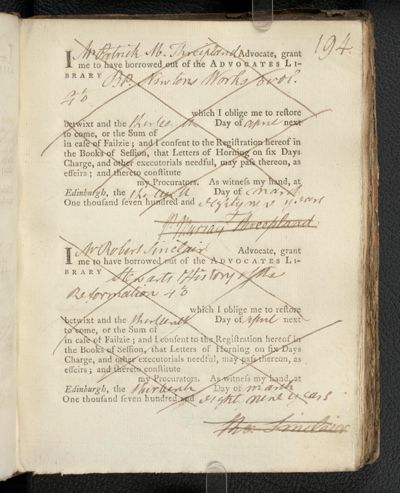 194.
I Mr Patrick M. Threipland Advocate, grant
me to have borrowed out of the ADVOCATES LI-
BRARY Bp. Newtons Works 3 vol.
4to
which I oblige me to restore
betwixt and the thirteenth Day of April next
to come, or the Sum of
in case of Failzie; and I consent to the Registration hereof in
the Books of Session, that Letters of Horning on six Days
Charge, and other executorials needful, may pass thereon, as
effeirs; and thereto constitute
my Procurators. As witness my hand, at
Edinburgh, the thirteenth Day of March
One thousand seven hundred and eighty nine years
P. Murray Threipland
I Mr Robert Sinclair Advocate, grant
me to have borrowed out of the ADVOCATES LI-
BRARY Stewarts History of the
Reformation 4to
which I oblige me to restore
betwixt and the thirteenth Day of April next
to come, or the Sum of
in case of Failzie; and I consent to the Registration hereof in
the Books of Session, that Letters of Horning on six Days
Charge, and other executorials needful, may pass thereon, as
effeirs; and thereto constitute
my Procurators. As witness my hand, at
Edinburgh, the thirteenth Day of March
One thousand seven hundred and eighty nine years
Sinclair